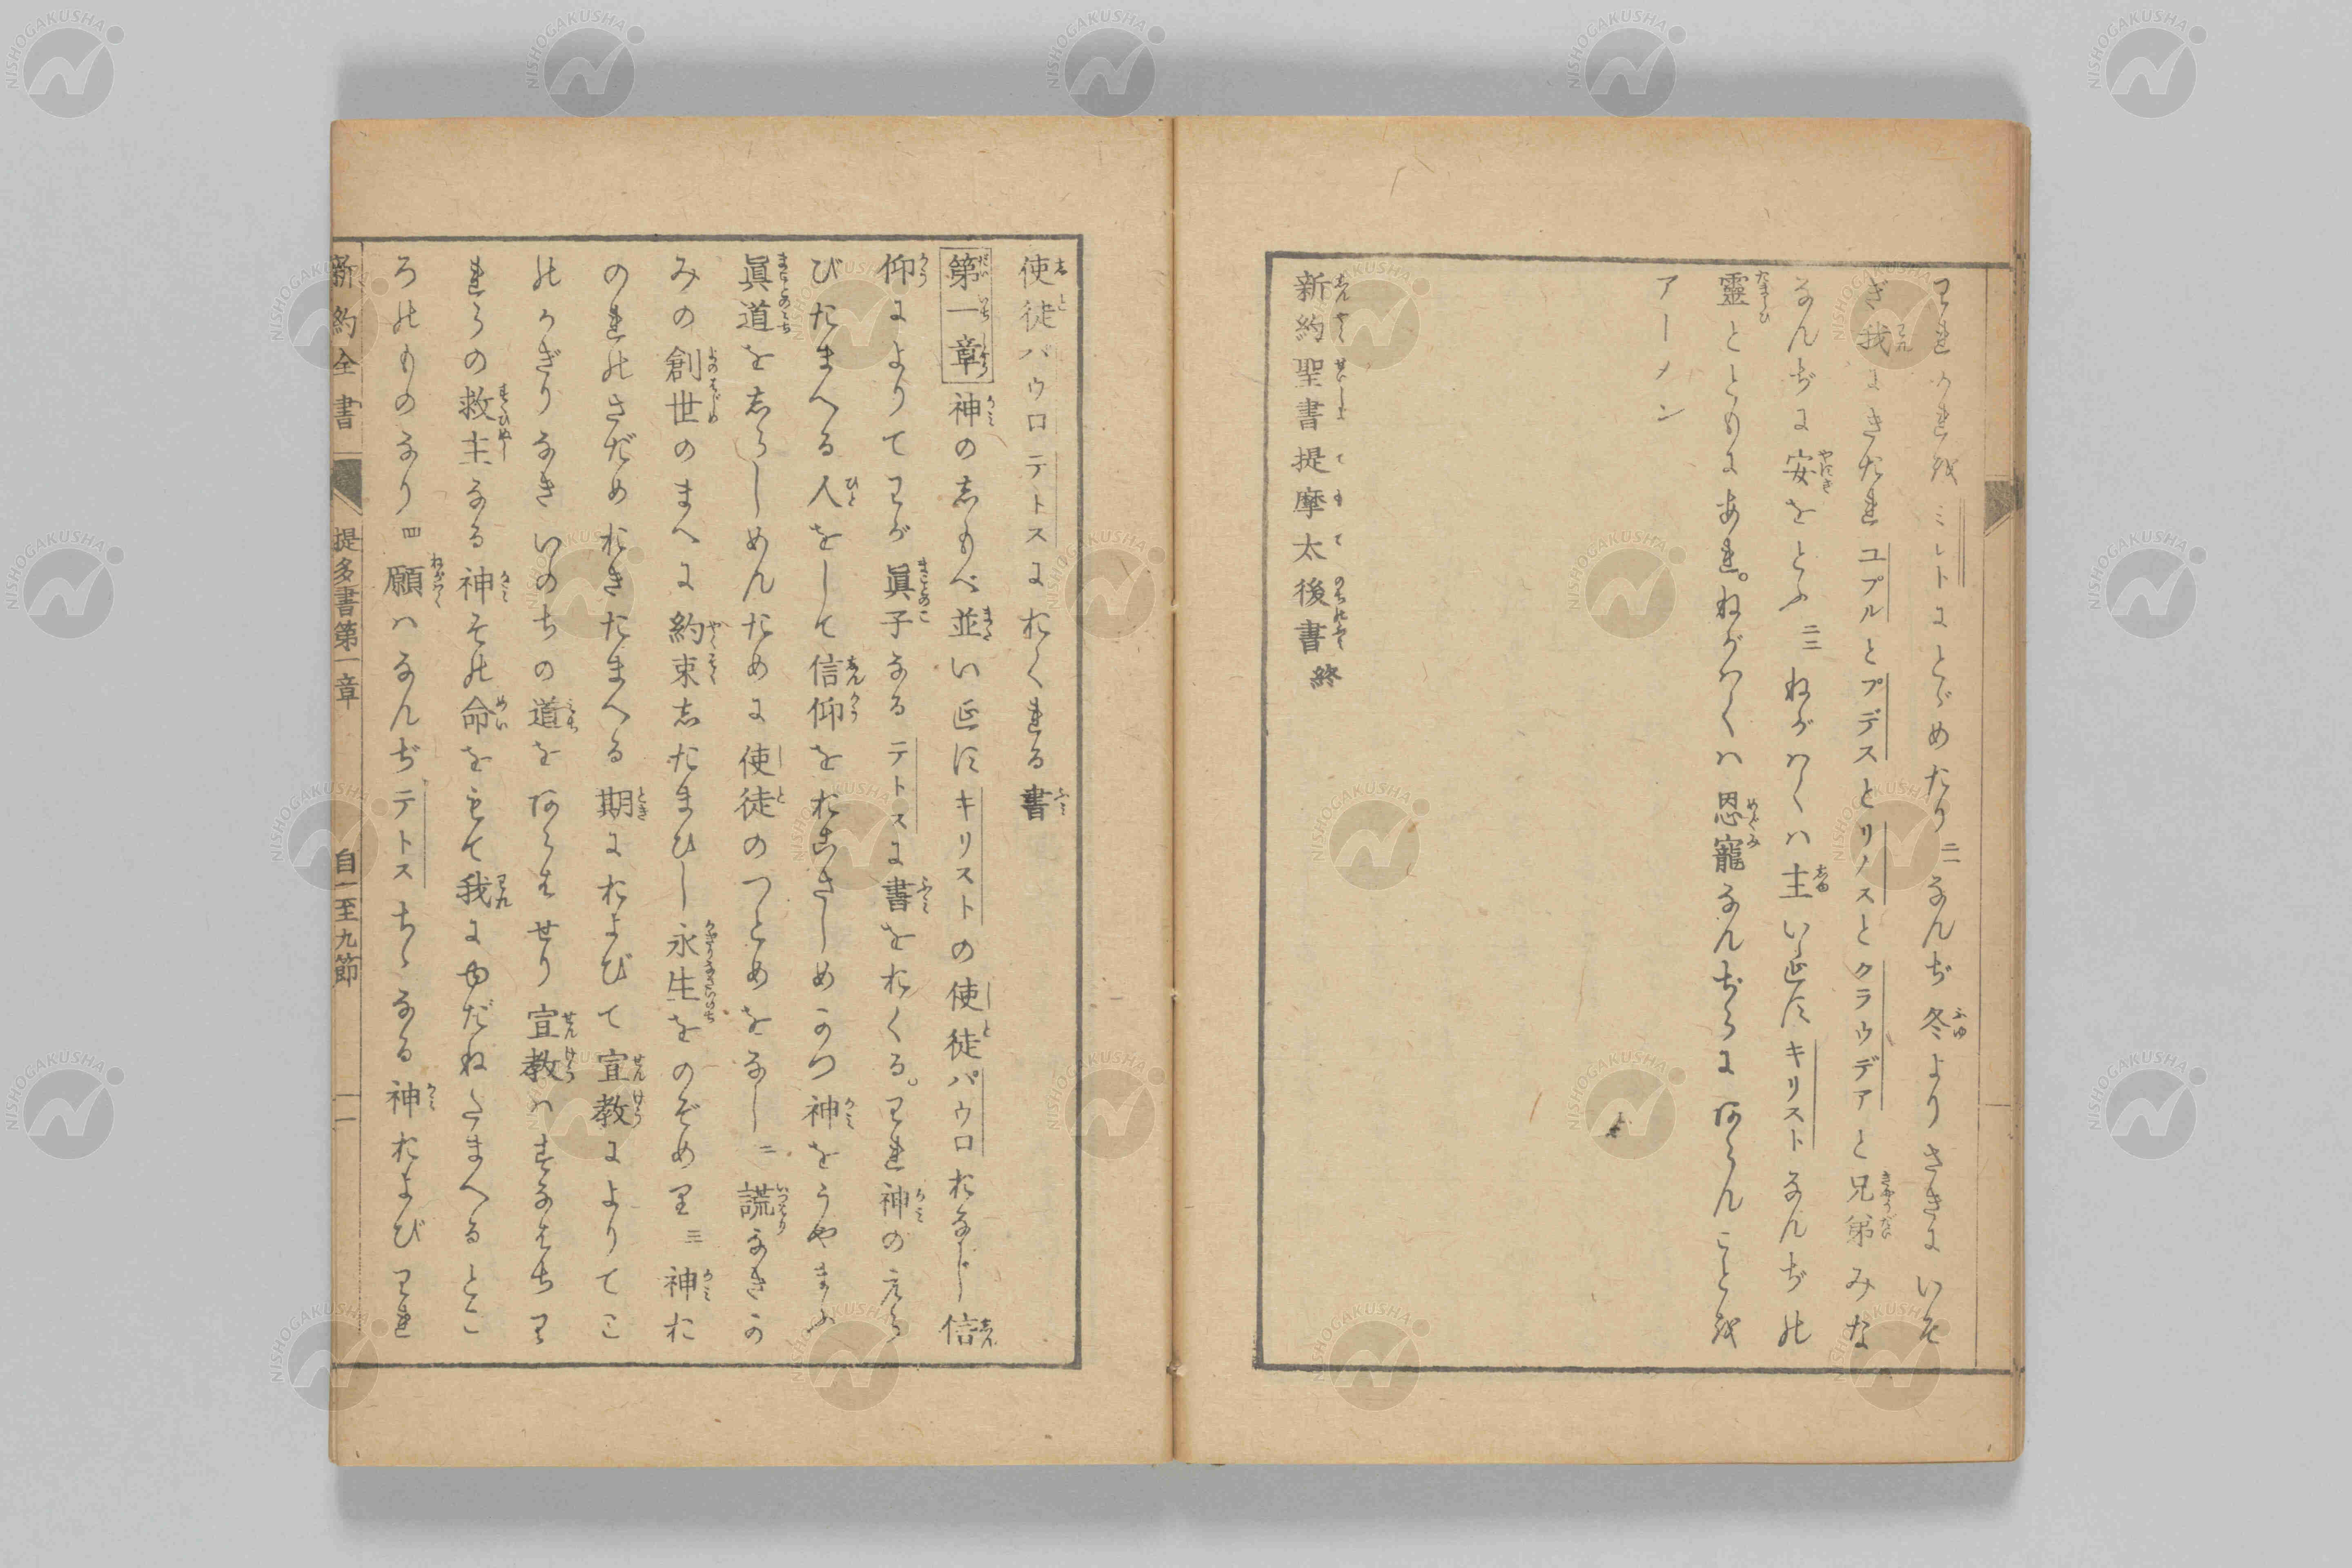 われかれを ミレトにとゞめたり 二一 なんぢ冬よりさきにいそ
ぎ我にきたれ ユブルとプデスとリノスとクラウデアと兄弟みな
なんぢに安をとふ 二二 ねがはくハ主いゑすキリストなんぢの
靈とともにあれ。ねがはくハ恩寵なんぢらにあらんことを
アーメン
新約聖書提摩太後書 終
使徒パウロテトスにおくれる書
第一章 神のしもべ並いゑすキリストの使徒パウロおなじ信
仰によりてわが眞子なるテトスに書をおくる。われ神のえら
びたまへる人をして信仰をおこさしめかつ神をうやまふ
眞道をしらしめんために使徒のつとめをなし 二 謊なきか
みの創世のまへに約束したまひし永生をのぞめり 三 神お
のれのさだめおきたまへる期におよびて宣教によりてこ
のかぎりなきいのちの道をあらはせり宣教ハすなはちわ
れらの救主なる神その命をもて我にゆだねたまへるとこ
ろのものなり 四 願ハなんぢテトスちゝなる神およびわれ
新約全書 提多書第一章 自一至九節 一